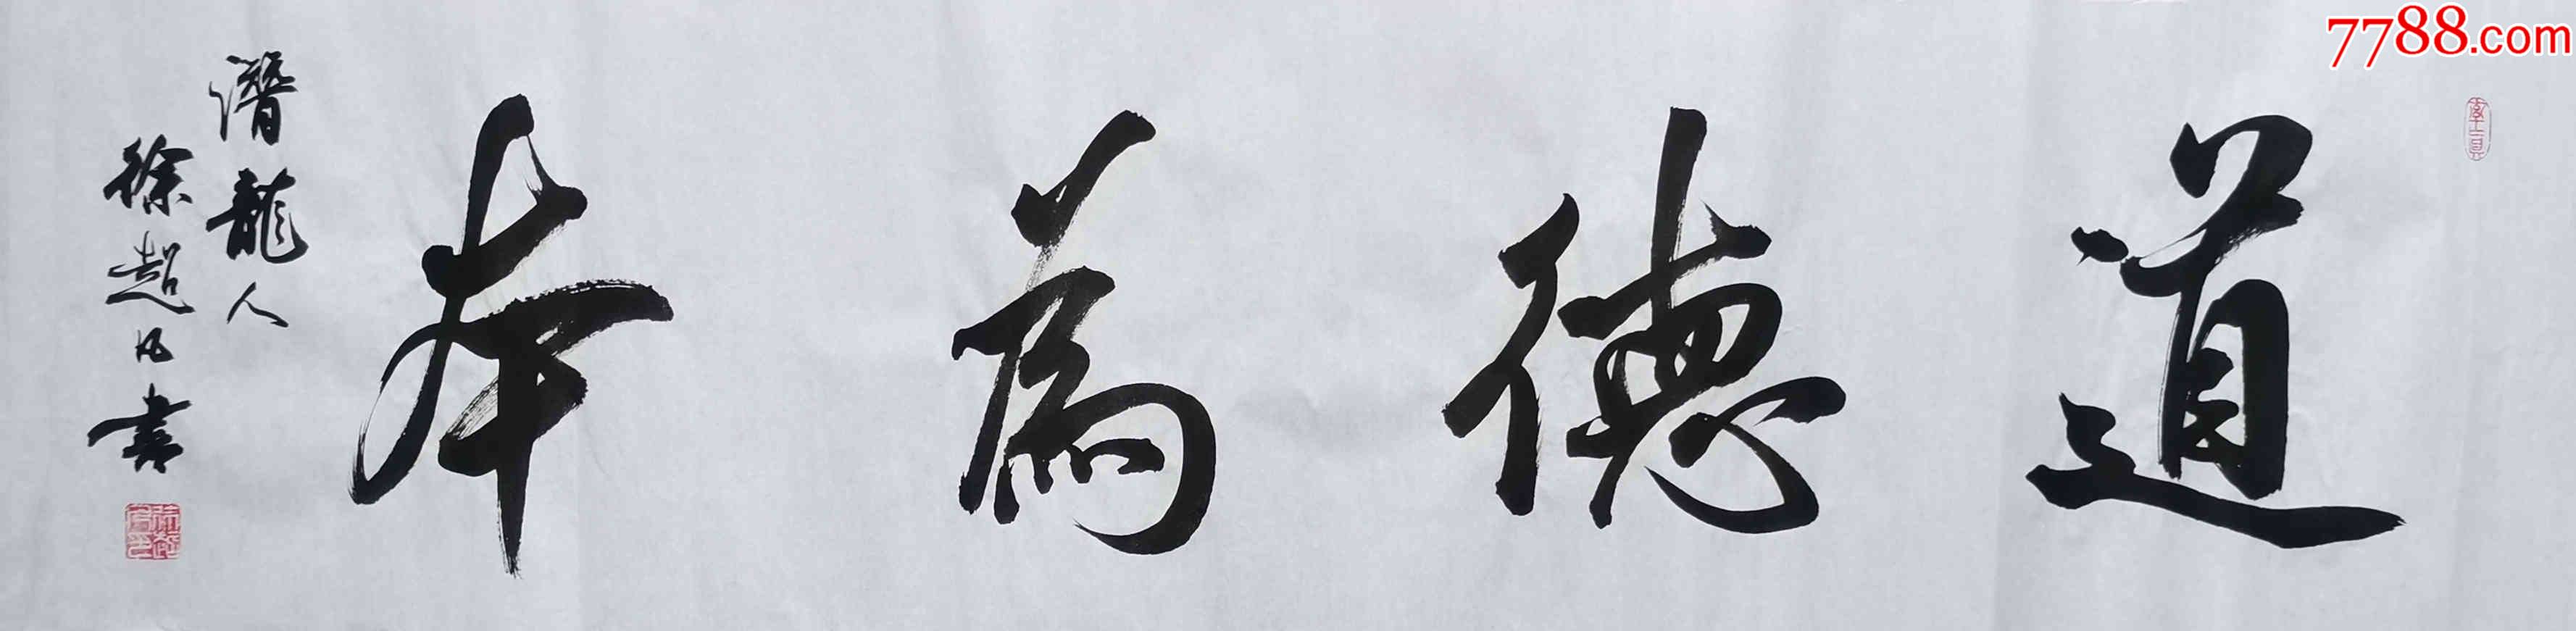 7788.com
道德為本
潛龍人
徐超凡書